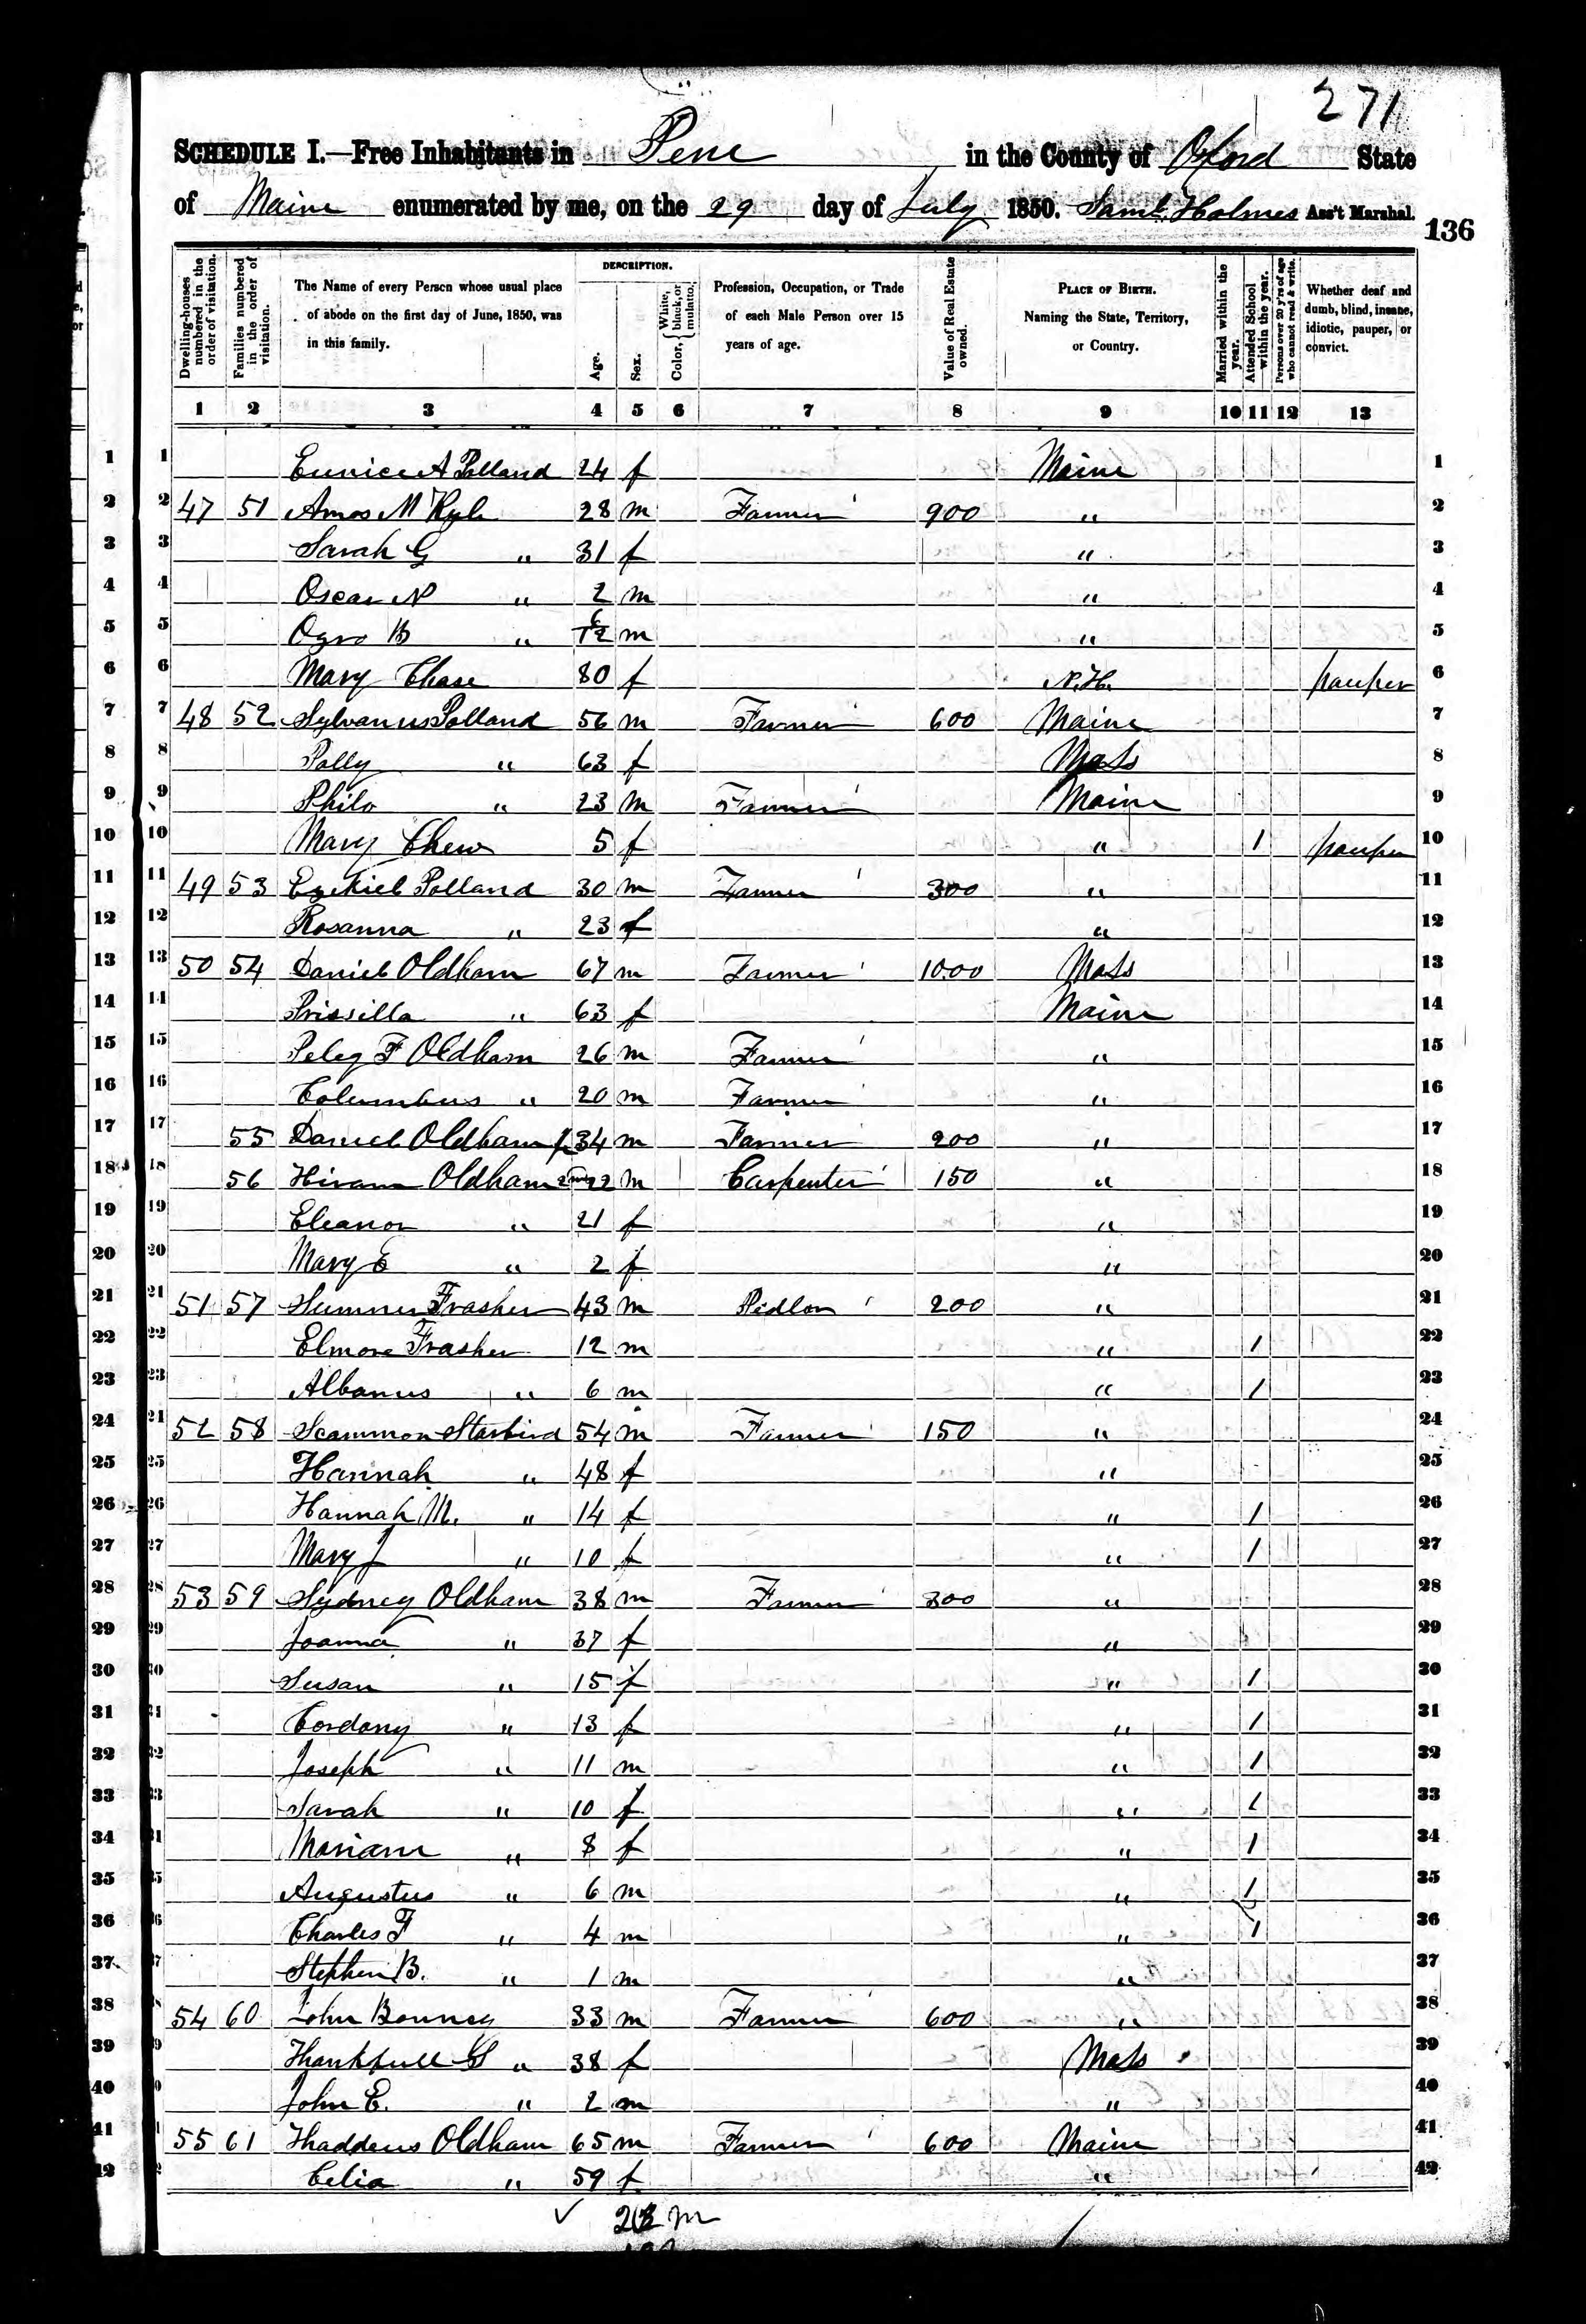 271
SCHEDULE I.—Free Inhabitants in Peru in the County of Oxford State
of Maine enumerated by me, on the 29 day of July 1850. Saml. Holmes Ass't Marshal.
136
Dwelling-houses numbered in the order of visitation.
Families numbered in the order of visitation.
The Name of every Person whose usual place of abode on the first day of June, 1850, was in this family.
DESCRIPTION.
Age.
Sex.
Color, { White, black, or mulatto. }
Profession, Occupation, or Trade of each Male Person over 15 years of age.
Value of Real Estate owned.
PLACE OF BIRTH. Naming the State, Territory, or Country.
Married within the year.
Attended School within the year.
Persons over 20 y'rs of age who cannot read & write.
Whether deaf and dumb, blind, insane, idiotic, pauper, or convict.
1 2 3 4 5 6 7 8 9 10 11 12 13
1 Eunice A Polland 24 f Maine 1
2 47 51 Amos M Kyle 28 m Farmer 900 " 2
3 Sarah G " 31 f " 3
4 Oscar N " 2 m " 4
5 B " 6/12 m " 5
6 Mary Chase 80 f N.H. pauper 6
7 48 52 Sylvanus Polland 56 m Farmer 600 Maine 7
8 Polly " 63 f Mass 8
9 Philo " 23 m Farmer Maine 9
10 Mary Chew 5 f " 1 pauper 10
11 49 53 Ezekiel Polland 30 m Farmer 300 " 11
12 Rosanna " 23 f " 12
13 50 54 Daniel Oldham 67 m Farmer 1000 Mass 13
14 Prissilla " 63 f Maine 14
15 Peleg F Oldham 26 m Farmer " 15
16 Columbus " 20 m Farmer " 16
17 55 Daniel Oldham Jr 34 m Farmer 200 " 17
18 56 Hiram Oldham 2nd 22 m Carpenter 150 " 18
19 Eleanor " 21 f " 19
20 Mary E " 2 f " 20
21 51 57 Sumner Frasher 43 m Pidlor 200 " 21
22 Elmore Frasher 12 m " 1 22
23 Albanus " 6 m " 1 23
24 52 58 Scammon Starbird 54 m Farmer 150 " 24
25 Hannah " 48 f " 25
26 Hannah M. " 14 f " 1 26
27 Mary J " 10 f " 1 27
28 53 59 Sydney Oldham 38 m Farmer 300 " 28
29 Joanna " 37 f " 29
30 Susan " 15 f " 1 30
31 Cordany " 13 f " 1 31
32 Joseph " 11 m " 1 32
33 Sarah " 10 f " 1 33
34 Mariam " 8 f " 1 34
35 Augustus " 6 m " 1 35
36 Charles F " 4 m " 1 36
37 Stephen B. " 1 m " 37
38 54 60 John Bonney 33 m Farmer 600 " 38
39 Thankfull G " 38 f Mass 39
40 John E. " 2 m " 40
41 55 61 Thaddeus Oldham 65 m Farmer 600 Maine 41
42 Celia " 59 f " 42
m